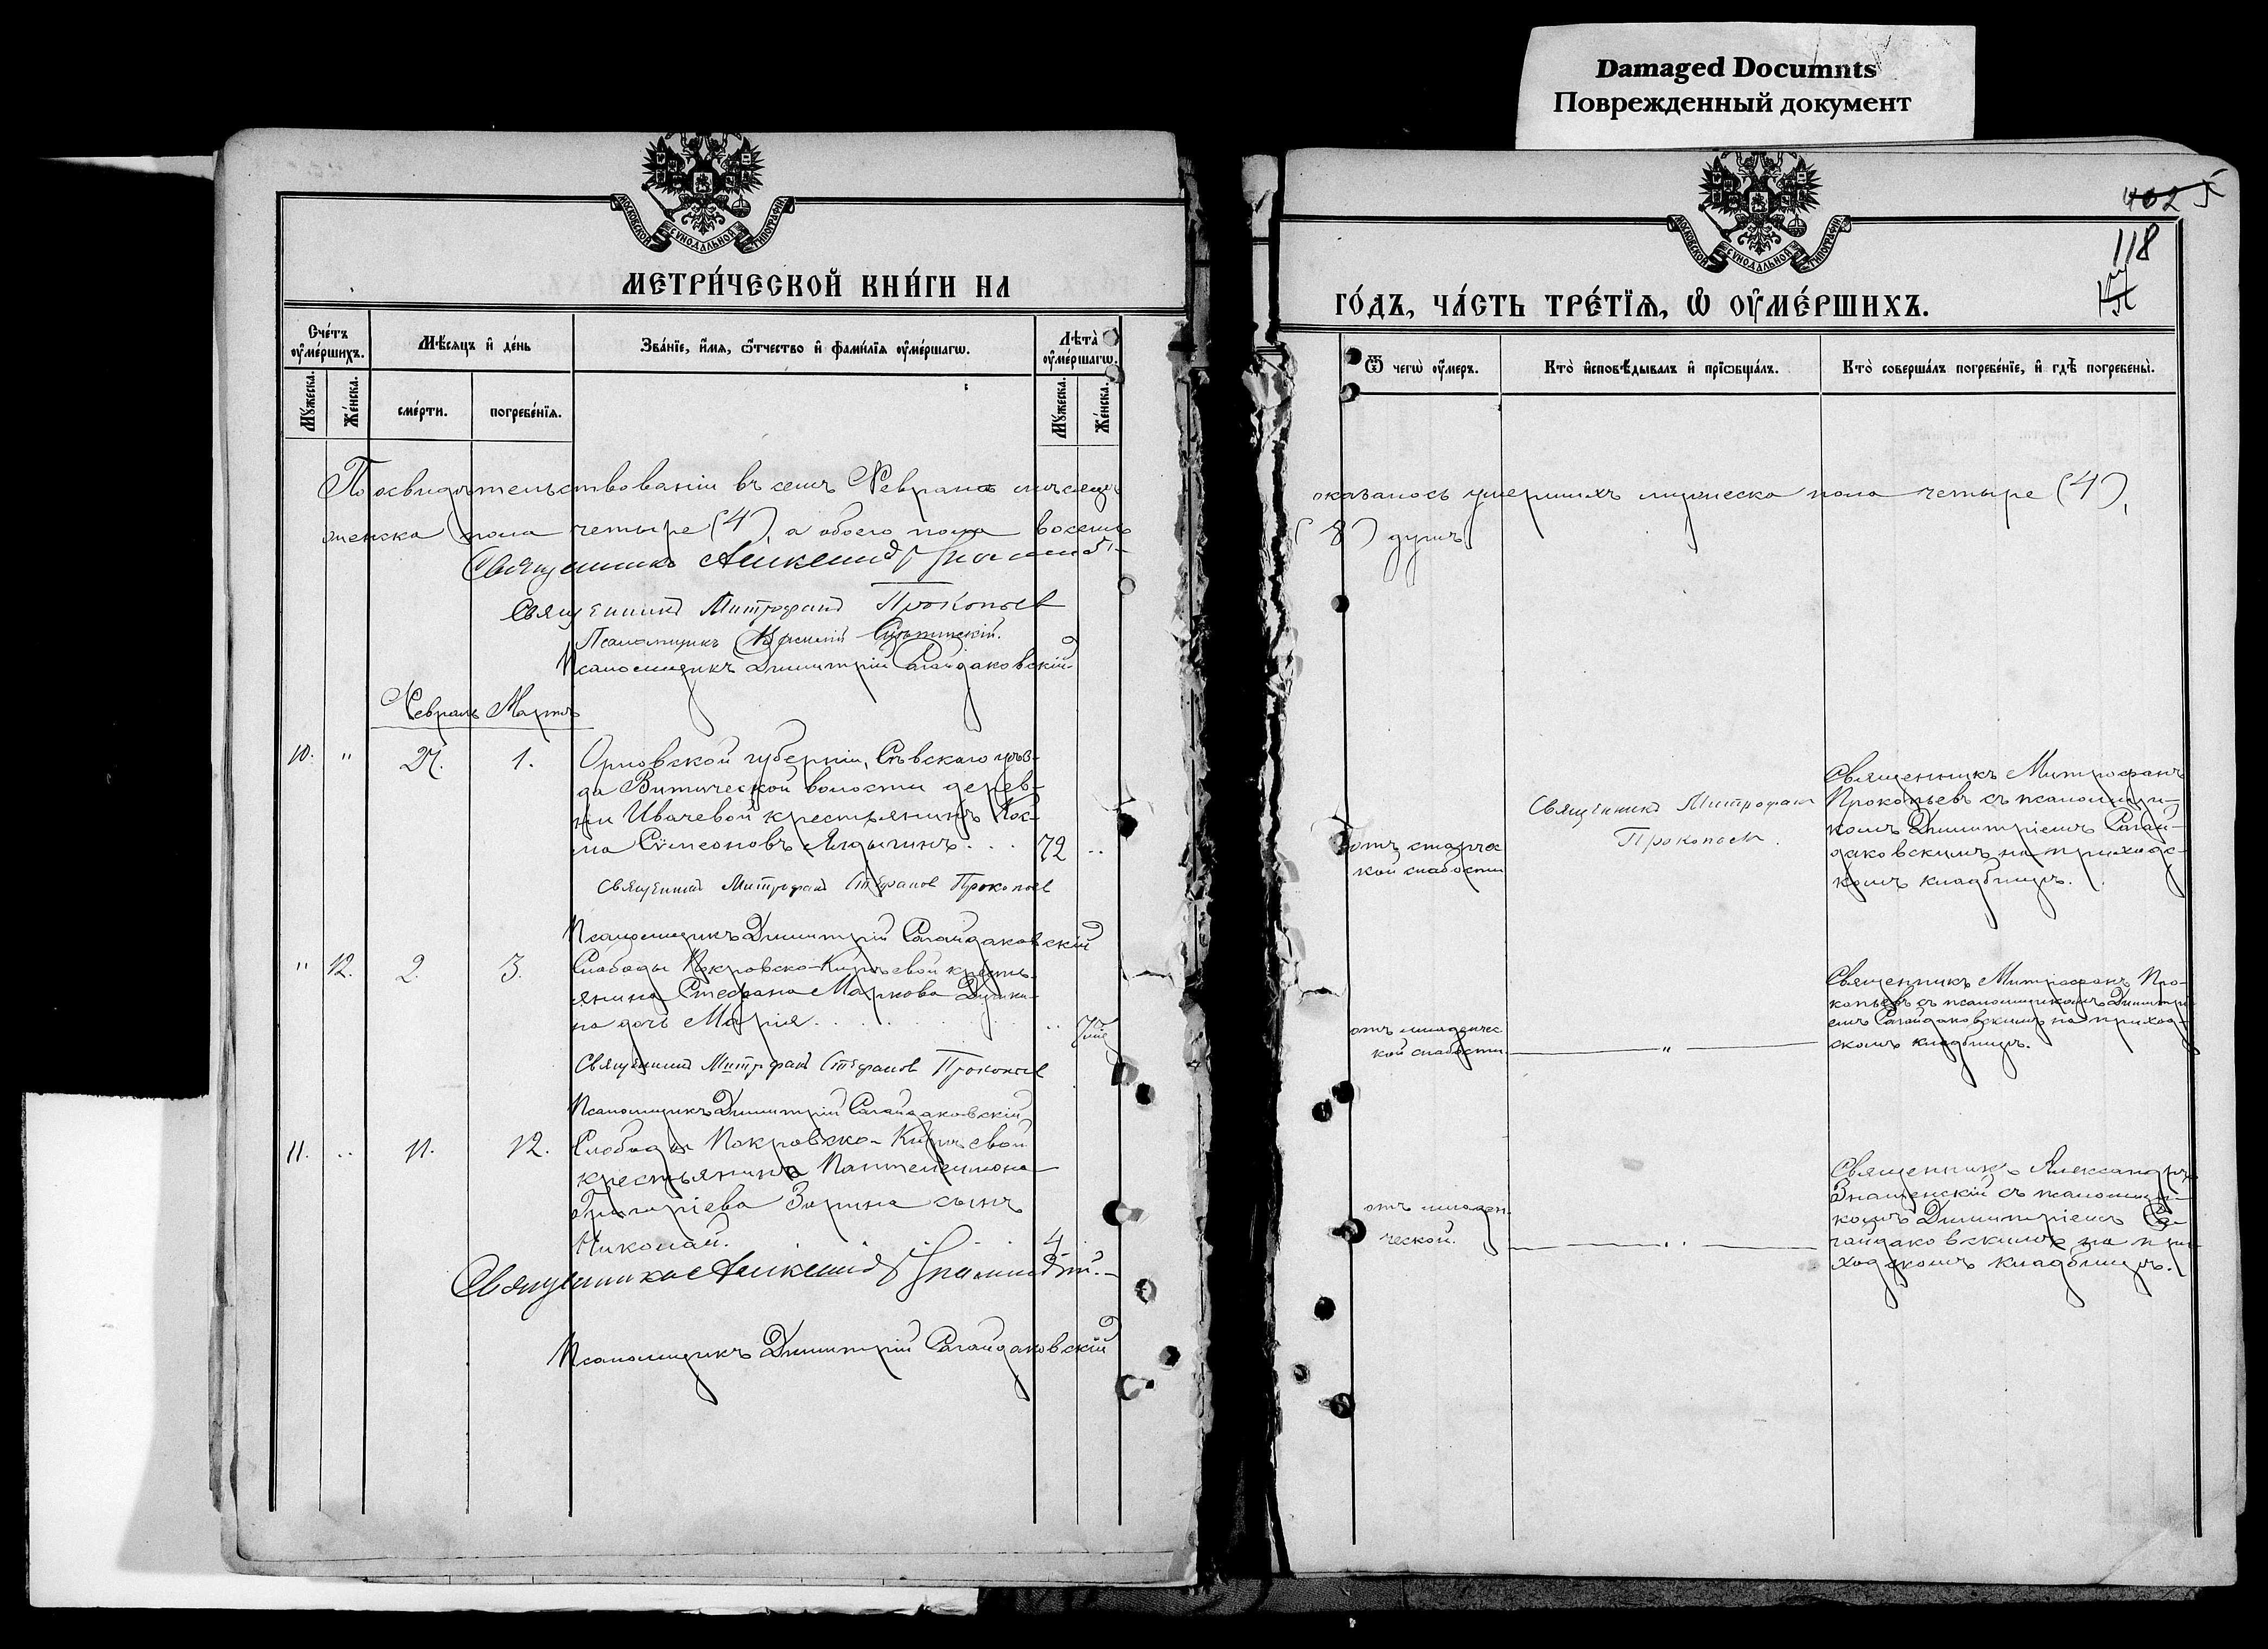 Damaged Documnts
Поврежденный документ
402
118
МОСКОВСКОЙ СѴНОДАЛЬНОЙ ТИПОГРАФІИ
МЕТРИ́ЧЕСКОЙ КНИ́ГИ НА
Сче́тъ оу҆ме́ршихъ.
Мѣ́сяцъ и҆ де́нь
Зва́нїе, и҆́мя, ѻ҆́тчество и҆ фами́лїя оу҆ме́ршагѡ.
Лѣ́та оу҆ме́ршагѡ.
Мꙋ́жеска.
Же́нска.
сме́рти.
погребе́нїя.
Мꙋ́жеска.
Же́нска.
По освидѣтельствованіи въ семъ Февралѣ мѣсяцѣ
женска пола четыре (4), а обоего пола восемь
Священникъ Александръ Знаменскій
Священникъ Митрофанъ Прокопьев
Псаломщикъ
Псаломщикъ Димитрій Сагайдаковскій
Февраль Мартъ
10. " 27. 1. Орловской губерніи, Сѣвскаго уѣз-
да Витической волости дерев-
ни Ивачевой крестьянинъ Кос-
ма Сѵмеоновъ . . . 72 ..
Священникъ Митрофанъ Стефанов Прокопьев
Псаломщикъ Димитрій Сагайдаковскій
" 12. 2. 3. Слободы Покровско-Киръевой кресть-
янина Стефана Маркова
на дочь Марія . . . ..
Священникъ Митрофанъ Стефанов Прокопьев
Псаломщикъ Димитрій Сагайдаковскій
11. .. 11. 12. Слободы Покровско-Киръевой
крестьянина Пантелеимона
Григоріева Зорина сынъ
Николай. . . . 4
Священникъ Александръ Знаменскій.
Псаломщикъ Димитрій Сагайдаковскій
МОСКОВСКОЙ СѴНОДАЛЬНОЙ ТИПОГРАФІИ
ГО́ДЪ, ЧА́СТЬ ТРЕ́ТЇЯ, Ѡ҆ ОУ҆МЕ́РШИХЪ.
Ѿ чегѡ̀ оу҆́меръ.
Кто̀ и҆сповѣ́дывалъ и҆ прїѡбща́лъ.
Кто̀ соверша́лъ погребе́нїе, и҆ гдѣ̀ погребены̀.
оказалось умершихъ мужеска пола четыре (4),
(8) душъ
отъ старчес-
кой слабости
Священникъ Митрофан
Прокопьев.
Священникъ Митрофанъ
Прокопьевъ съ псаломщи-
комъ Димитріемъ Сагай-
даковскимъ на приходс-
комъ кладбищѣ.
отъ младенчес-
кой слабости
"
Священникъ Митрофанъ Про-
копьевъ съ псаломщикомъ Димитрі-
емъ Сагайдаковскимъ на приход-
скомъ кладбищѣ.
отъ младен-
ческой.
Священникъ Александръ
Знаменскій съ псаломщи-
комъ Димитріемъ Са-
гайдаковскимъ на при-
ходскомъ кладбищѣ.